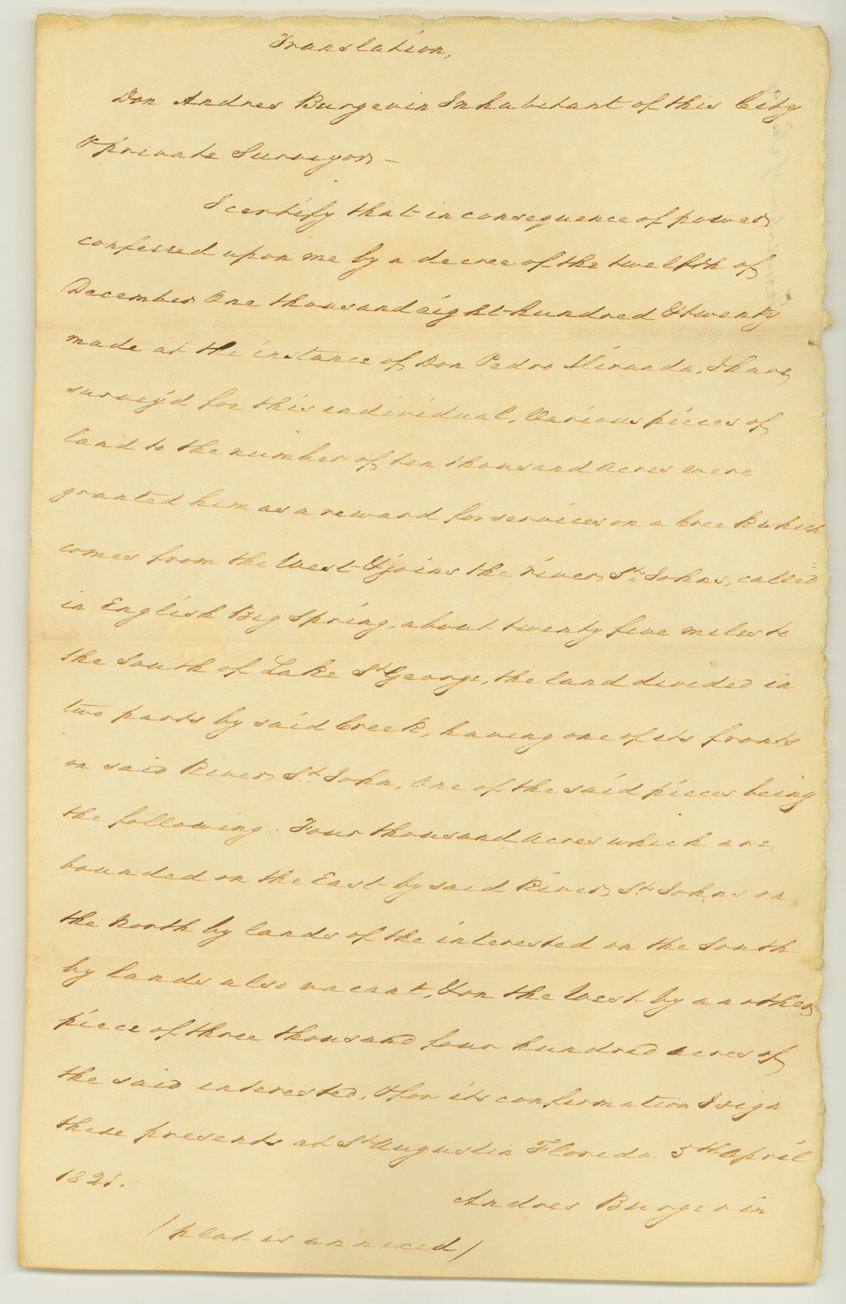 Translation,
Don Andres Burgevin Inhabitant of this City
& private Surveyor —
I certify that in consequence of power
confered upon me by a decree of the twelfth of
December One thousand eight hundred & twenty
made at the instance of Don Pedro Miranda, I have
survey'd for this individual, Various pieces of
land to the number of ten thousand acres were
granted him as a reward for services on a Creek which
comes from the West & joins the river St. Johns, called
in English Big Spring, about twenty five miles to
the South of Lake St George, the land divided in
two parts by said Creek, having one of its fronts
on said River St. John, One of the said pieces being
the following: Four thousand acres which are
bounded on the East by said River St. Johns on
the North by lands of the interested on the South
by lands also vacant, & on the West by another
piece of three thousand four hundred acres of
the said interested, & for its confirmation I sign
these presents at St Augustin Florida 5th April
1821.
Andres Burgevin
/ plat is annexed /